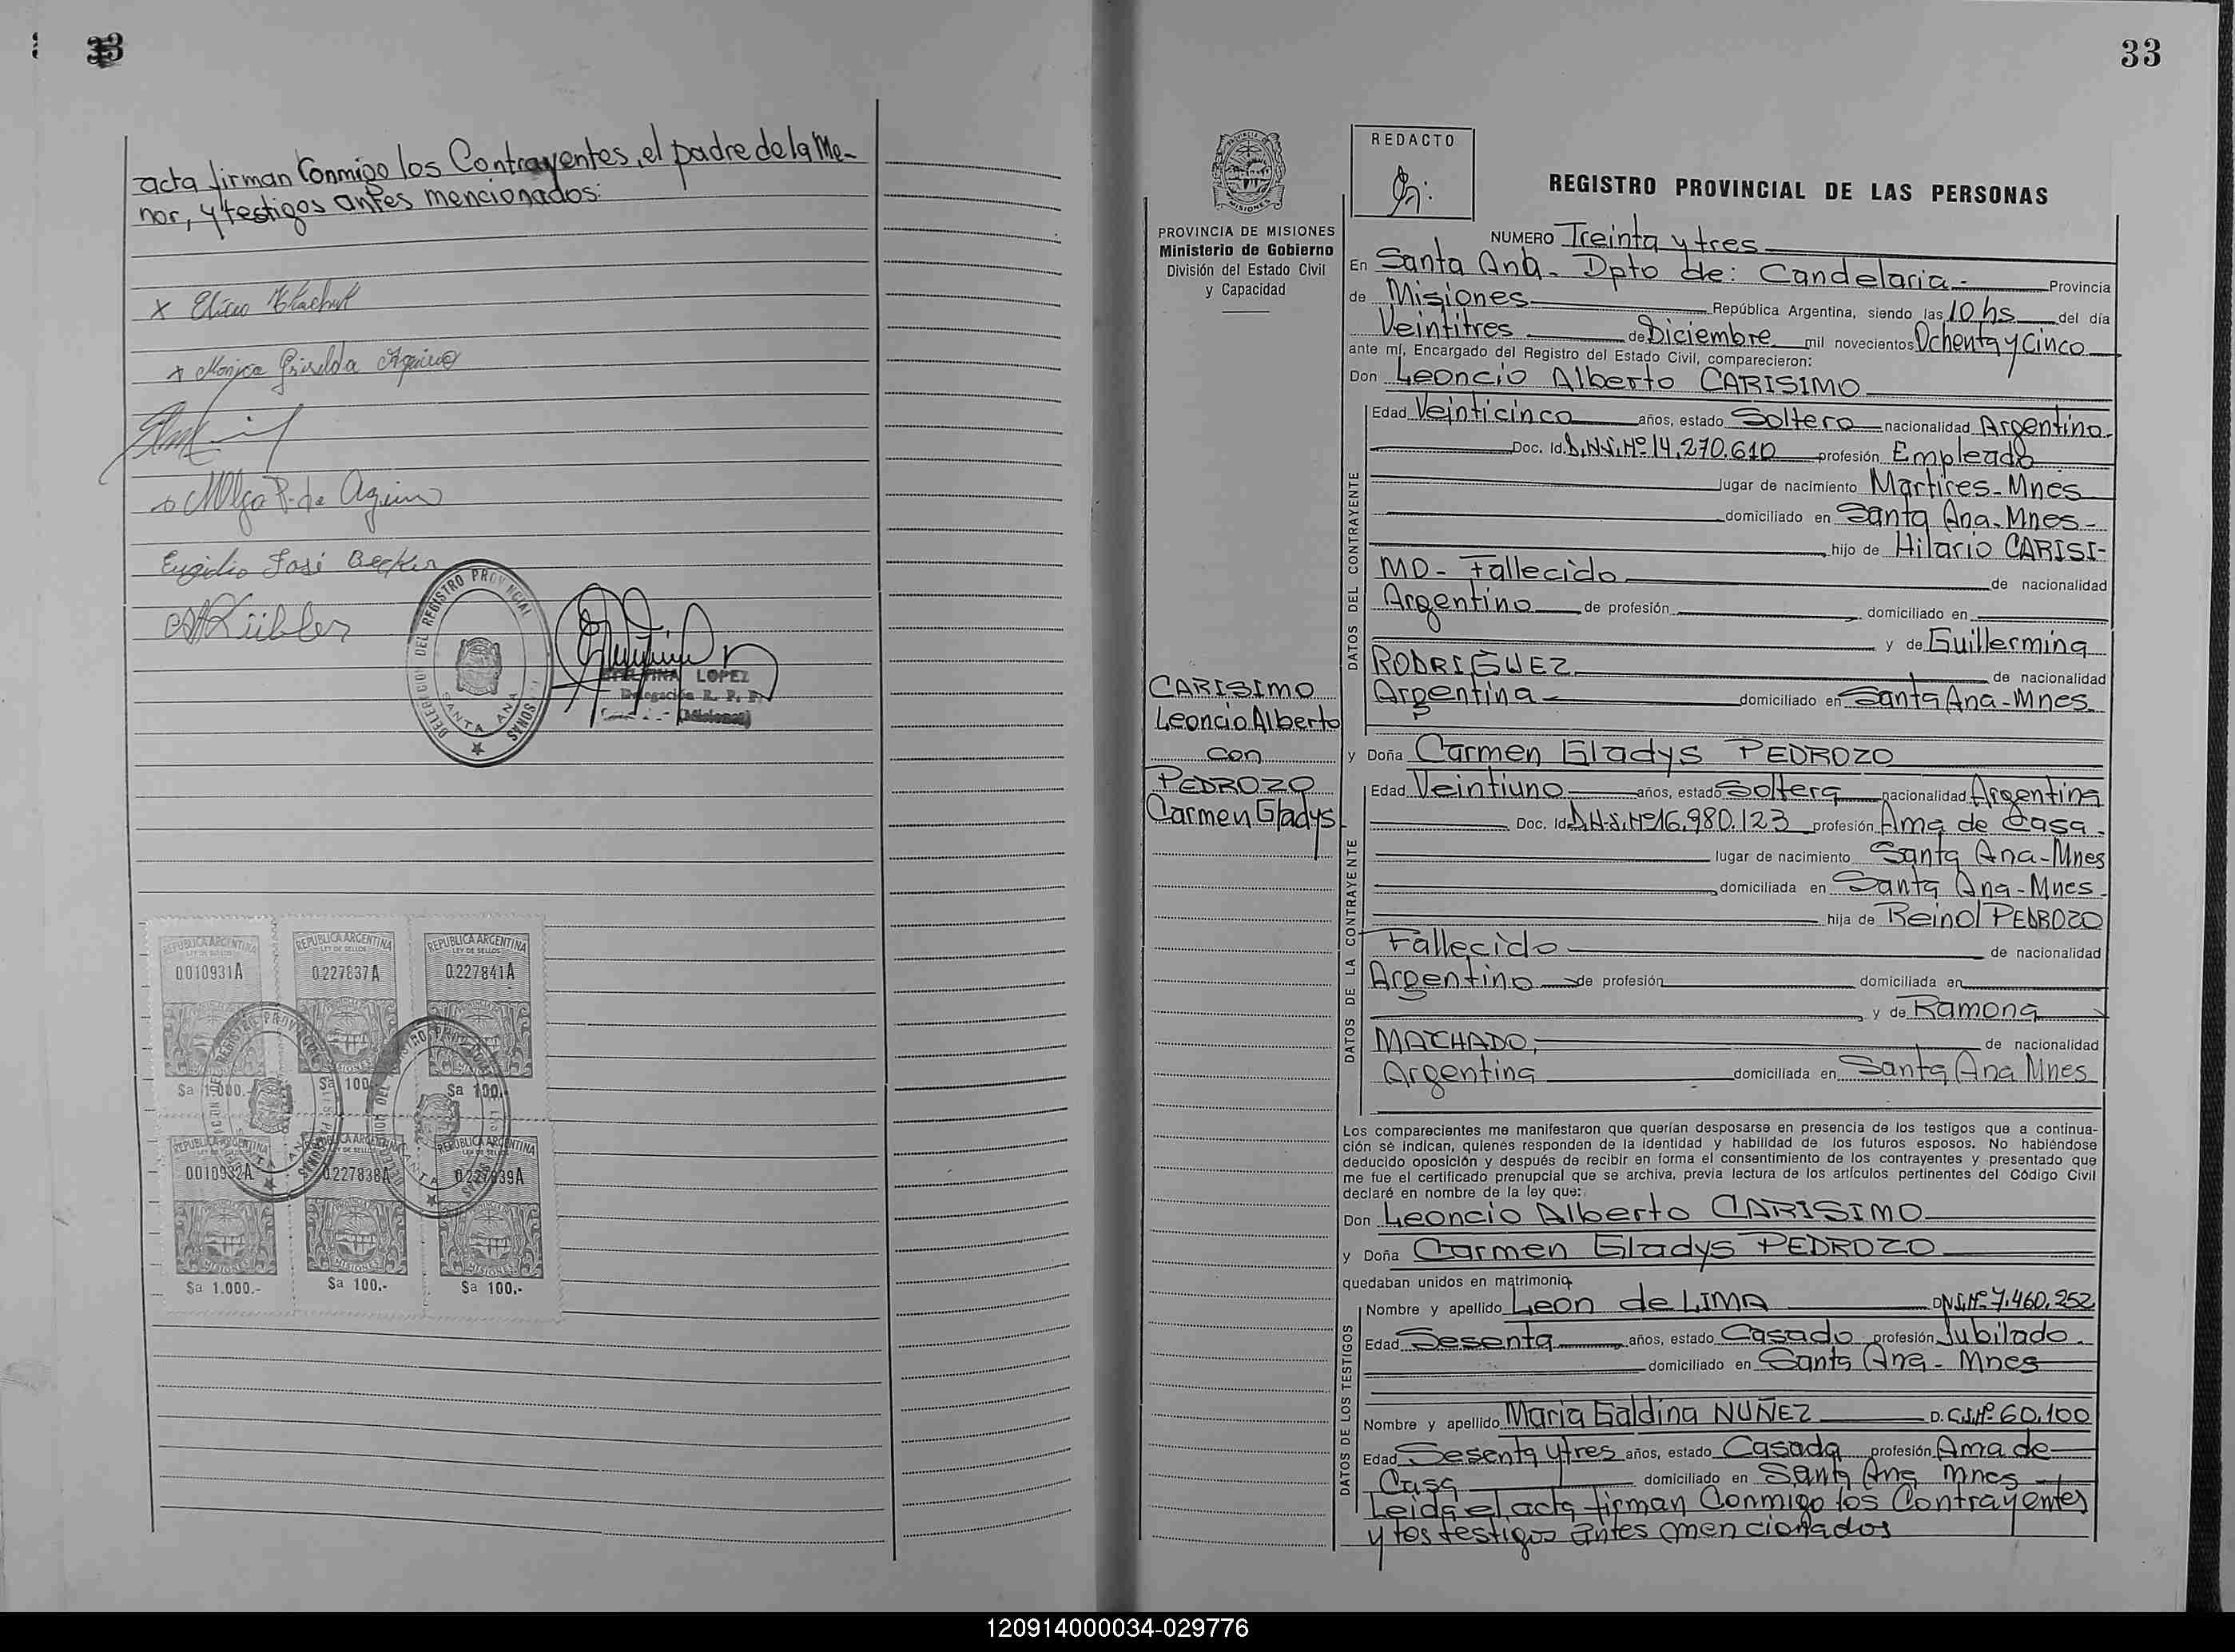 33
acta firman Conmigo los Contrayentes, el padre de la Me-
nor, y testigos antes mencionados:
x Elicio
x Monica Griselda Aquino
Olga P. de Aquino
Eugidio José Becker
Kübler
DELEGACION DEL REGISTRO PROVINCIAL
SANTA ANA
LOPEZ
Delegación R. P. P.
(Misiones)
REPUBLICA ARGENTINA REPUBLICA ARGENTINA REPUBLICA ARGENTINA
LEY DE SELLOS LEY DE SELLOS LEY DE SELLOS
0010931A 0.227837A 0.227841A
$a 1.000.- $a 100.- $a 100.-
REPUBLICA ARGENTINA REPUBLICA ARGENTINA REPUBLICA ARGENTINA
0010932A 0.227838A 0.227839A
MISIONES MISIONES MISIONES
$a 1.000.- $a 100.- $a 100.-
33
PROVINCIA DE MISIONES
Ministerio de Gobierno
División del Estado Civil
y Capacidad
REDACTO
REGISTRO PROVINCIAL DE LAS PERSONAS
NUMERO Treinta y tres
En Santa Ana - Dpto de: Candelaria - Provincia
de Misiones República Argentina, siendo las 10 hs del día
Veintitres de Diciembre mil novecientos Ochenta y Cinco
ante mí, Encargado del Registro del Estado Civil, comparecieron:
Don Leoncio Alberto CARISIMO
DATOS DEL CONTRAYENTE
Edad Veinticinco años, estado Soltero nacionalidad Argentino.
Doc. Id. D.N.I. Nº 14.270.610 profesión Empleado
lugar de nacimiento Martires - Mnes
domiciliado en Santa Ana - Mnes -
hijo de Hilario CARISI-
MO - Fallecido de nacionalidad
Argentino de profesión domiciliado en
y de Guillermina
RODRIGUEZ de nacionalidad
Argentina domiciliado en Santa Ana - Mnes.
CARISIMO
Leoncio Alberto
con
PEDROZO
Carmen Gladys
y Doña Carmen Gladys PEDROZO
DATOS DE LA CONTRAYENTE
Edad Veintiuno años, estado Soltera nacionalidad Argentina
Doc. Id D.N.I. Nº 16.980.123 profesión Ama de Casa.
lugar de nacimiento Santa Ana - Mnes
domiciliada en Santa Ana - Mnes -
hija de Reinol PEDROZO
Fallecido de nacionalidad
Argentino de profesión domiciliada en
y de Ramona
MACHADO, de nacionalidad
Argentina domiciliada en Santa Ana Mnes
Los comparecientes me manifestaron que querían desposarse en presencia de los testigos que a continua-
ción se indican, quienes responden de la identidad y habilidad de los futuros esposos. No habiéndose
deducido oposición y después de recibir en forma el consentimiento de los contrayentes y presentado que
me fue el certificado prenupcial que se archiva, previa lectura de los artículos pertinentes del Código Civil
declaré en nombre de la ley que:
Don Leoncio Alberto CARISIMO
y Doña Carmen Gladys PEDROZO
quedaban unidos en matrimonio
DATOS DE LOS TESTIGOS
Nombre y apellido Leon de LIMA DNI. Nº 7.460.252
Edad Sesenta años, estado Casado profesión Jubilado.
domiciliado en Santa Ana - Mnes
Nombre y apellido Maria Galdina NUÑEZ D. C.I. Nº 60.100
Edad Sesenta y tres años, estado Casada profesión Ama de
Casa domiciliado en Santa Ana Mnes
Leida el acta firman Conmigo los Contrayentes
y los testigos antes mencionados
120914000034-029776